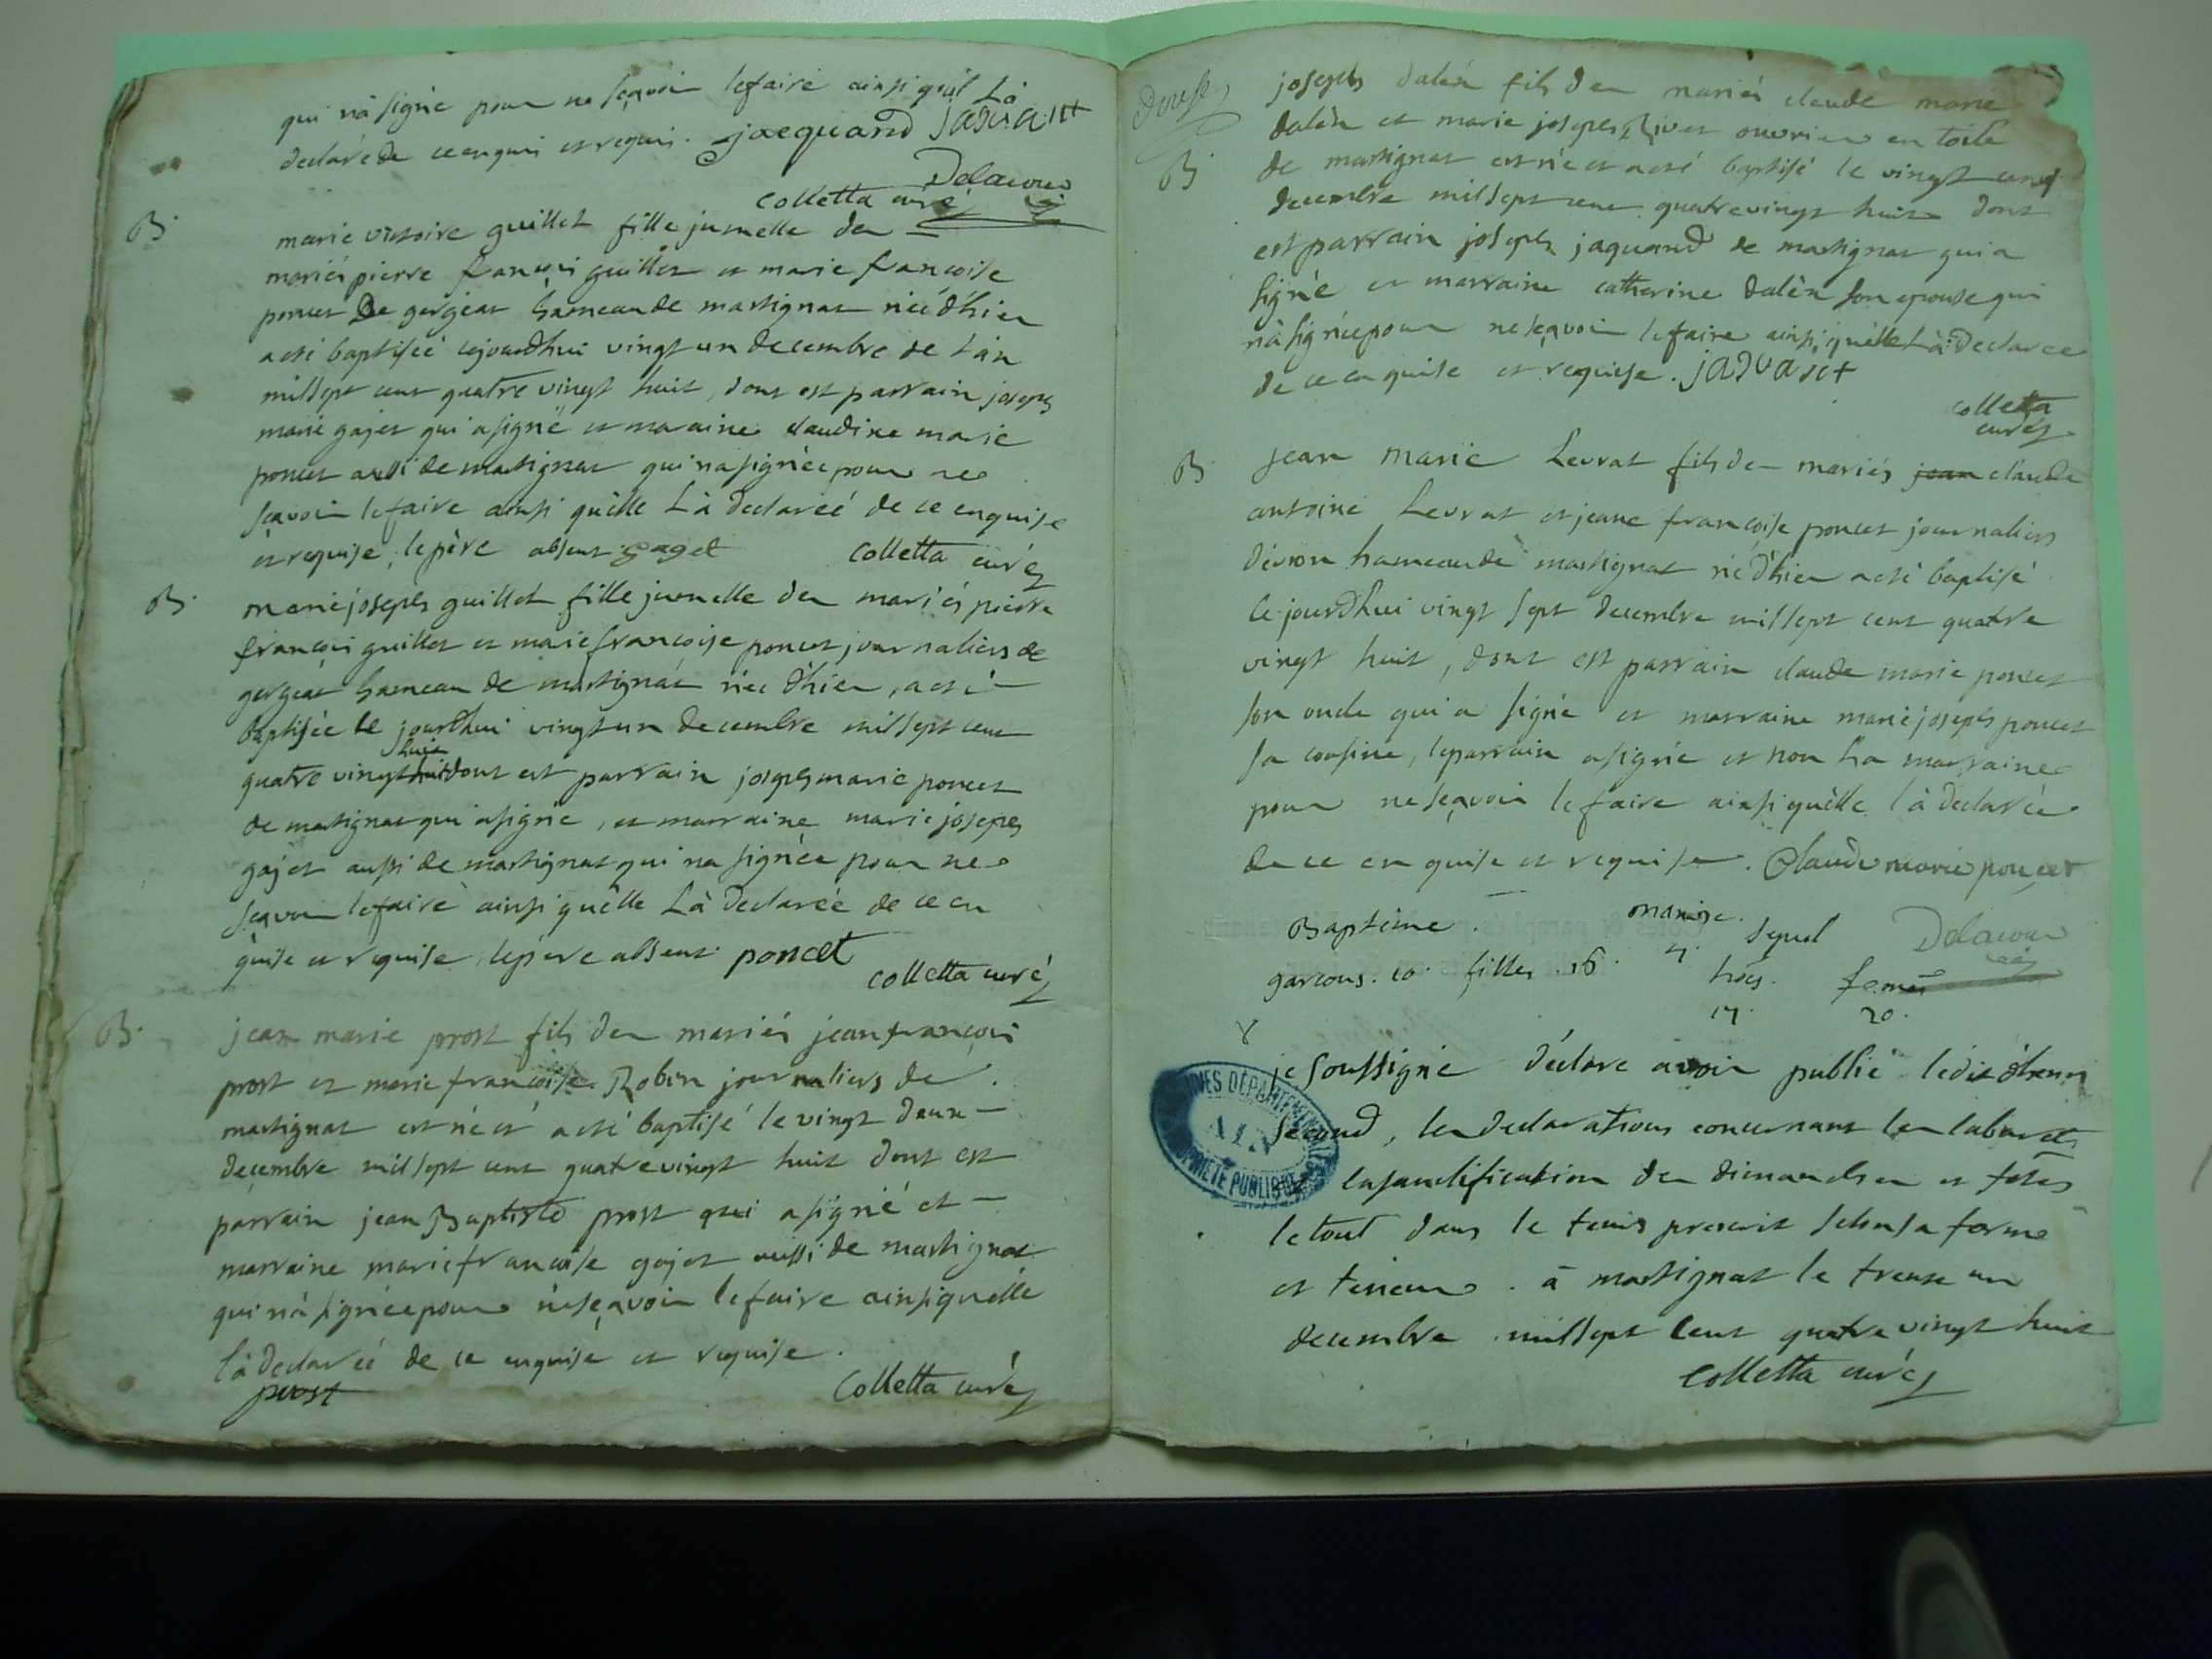 qui nà signé pour ne sçavoir le faire ainsi quil là
declaré de ce enquis et requis. jacquand jaquant
Delacour
colletta curé
B. marie victoire guillet fille jumelle des
mariés pierre francois guillet et marie francoise
poncet de gergeat hameau de martignat née dhier
a été baptisée cejourdhui vingt un decembre de l'an
mil sept cent quatre vingt huit, dont est parrain joseph
marie gajet qui a signé et maraine claudine marie
poncet aussi de martignat qui na signée pour ne
sçavoir le faire ainsi quèlle là declareé de ce enquise
et requise, le père absent. gaget colletta curé
B. marie joseph guillet fille jumelle des mariés pierre
francois guillet et marie francoise poncet journaliers de
gergeat hameau de martignat née dhier, a été
baptisée le jourdhui vingt un decembre mil sept cent
quatre vingt huit dont est parrain joseph marie poncet
de martignat qui a signé, et marraine marie joseph
gajet aussi de martignat qui na signée pour ne
sçavoir le faire ainsi quèlle là declareé de ce en
quise et requise, le père absent. poncet
colletta curé
B. jean marie prost fils des mariés jean francois
prost et marie francoise Robin journaliers de
martignat est né et a été baptisé le vingt deux
decembre mil sept cent quatre vingt huit dont est
parrain jean Baptiste prost qui a signé et
marraine marie francoise gajet aussi de martignat
qui nà signée pour ne sçavoir le faire ainsi quelle
là declareé de ce enquise et requise.
prost colletta curé
douse
joseph dalèn fils des mariés claude marie
dalèn et marie joseph Rivet ouvriers en toile
B de martignat est né et a été baptisé le vingt cinq
decembre mil sept cent quatre vingt huit dont
est parrain joseph jaquand de martignat qui a
signé et marraine catherine dalèn son epouse qui
nà signée pour ne sçavoir le faire ainsi quèlle là declaree
de ce enquise et requise. jaquant
colletta
curé
B jean marie Levrat fils des mariés jean claude
antoine Levrat et jeane francoise poncet journaliers
d'évron hameau de martignat né d'hier a été baptisé
cejourdhui vingt sept decembre mil sept cent quatre
vingt huit, dont est parrain claude marie poncet
son oncle qui a signé et marraine marie joseph poncet
sa cousine, le parrain a signé et non la marraine
pour ne sçavoir le faire ainsi quèlle là declarée
de ce enquise et requise. Claude marie poncet
Baptême. mariage. sepul Delacour
garcons. 10. filles. 16. 4. hoes. femes
17. 20.
je soussigné déclare avoir publié lédit dhenri
second, les declarations concernant les cabarets
la santification des dimanches et fêtes
le tout dans le tems prescrit selon sa forme
et teneur. à martignat le trente un
decembre mil sept cent quatre vingt huit
colletta curé
ARCHIVES DÉPARTEMENTALES
AIN
PROPRIÉTÉ PUBLIQUE